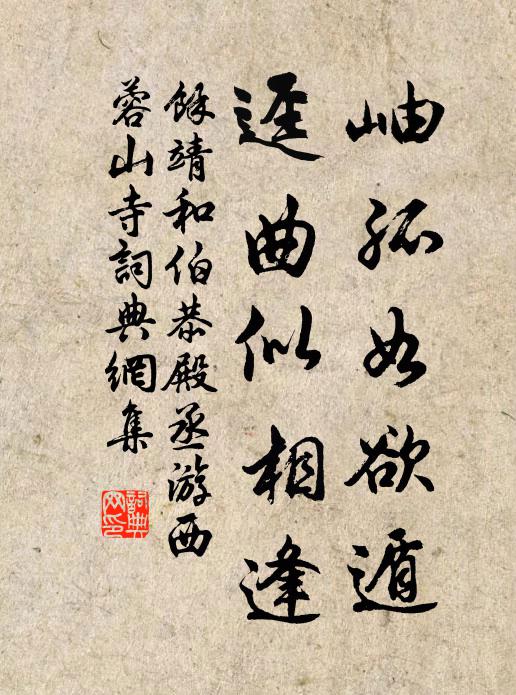 岫孤如欲遁
逕曲似相逢
餘靖和伯恭殿丞游西
蓉山寺詞典網集
詞典
网印